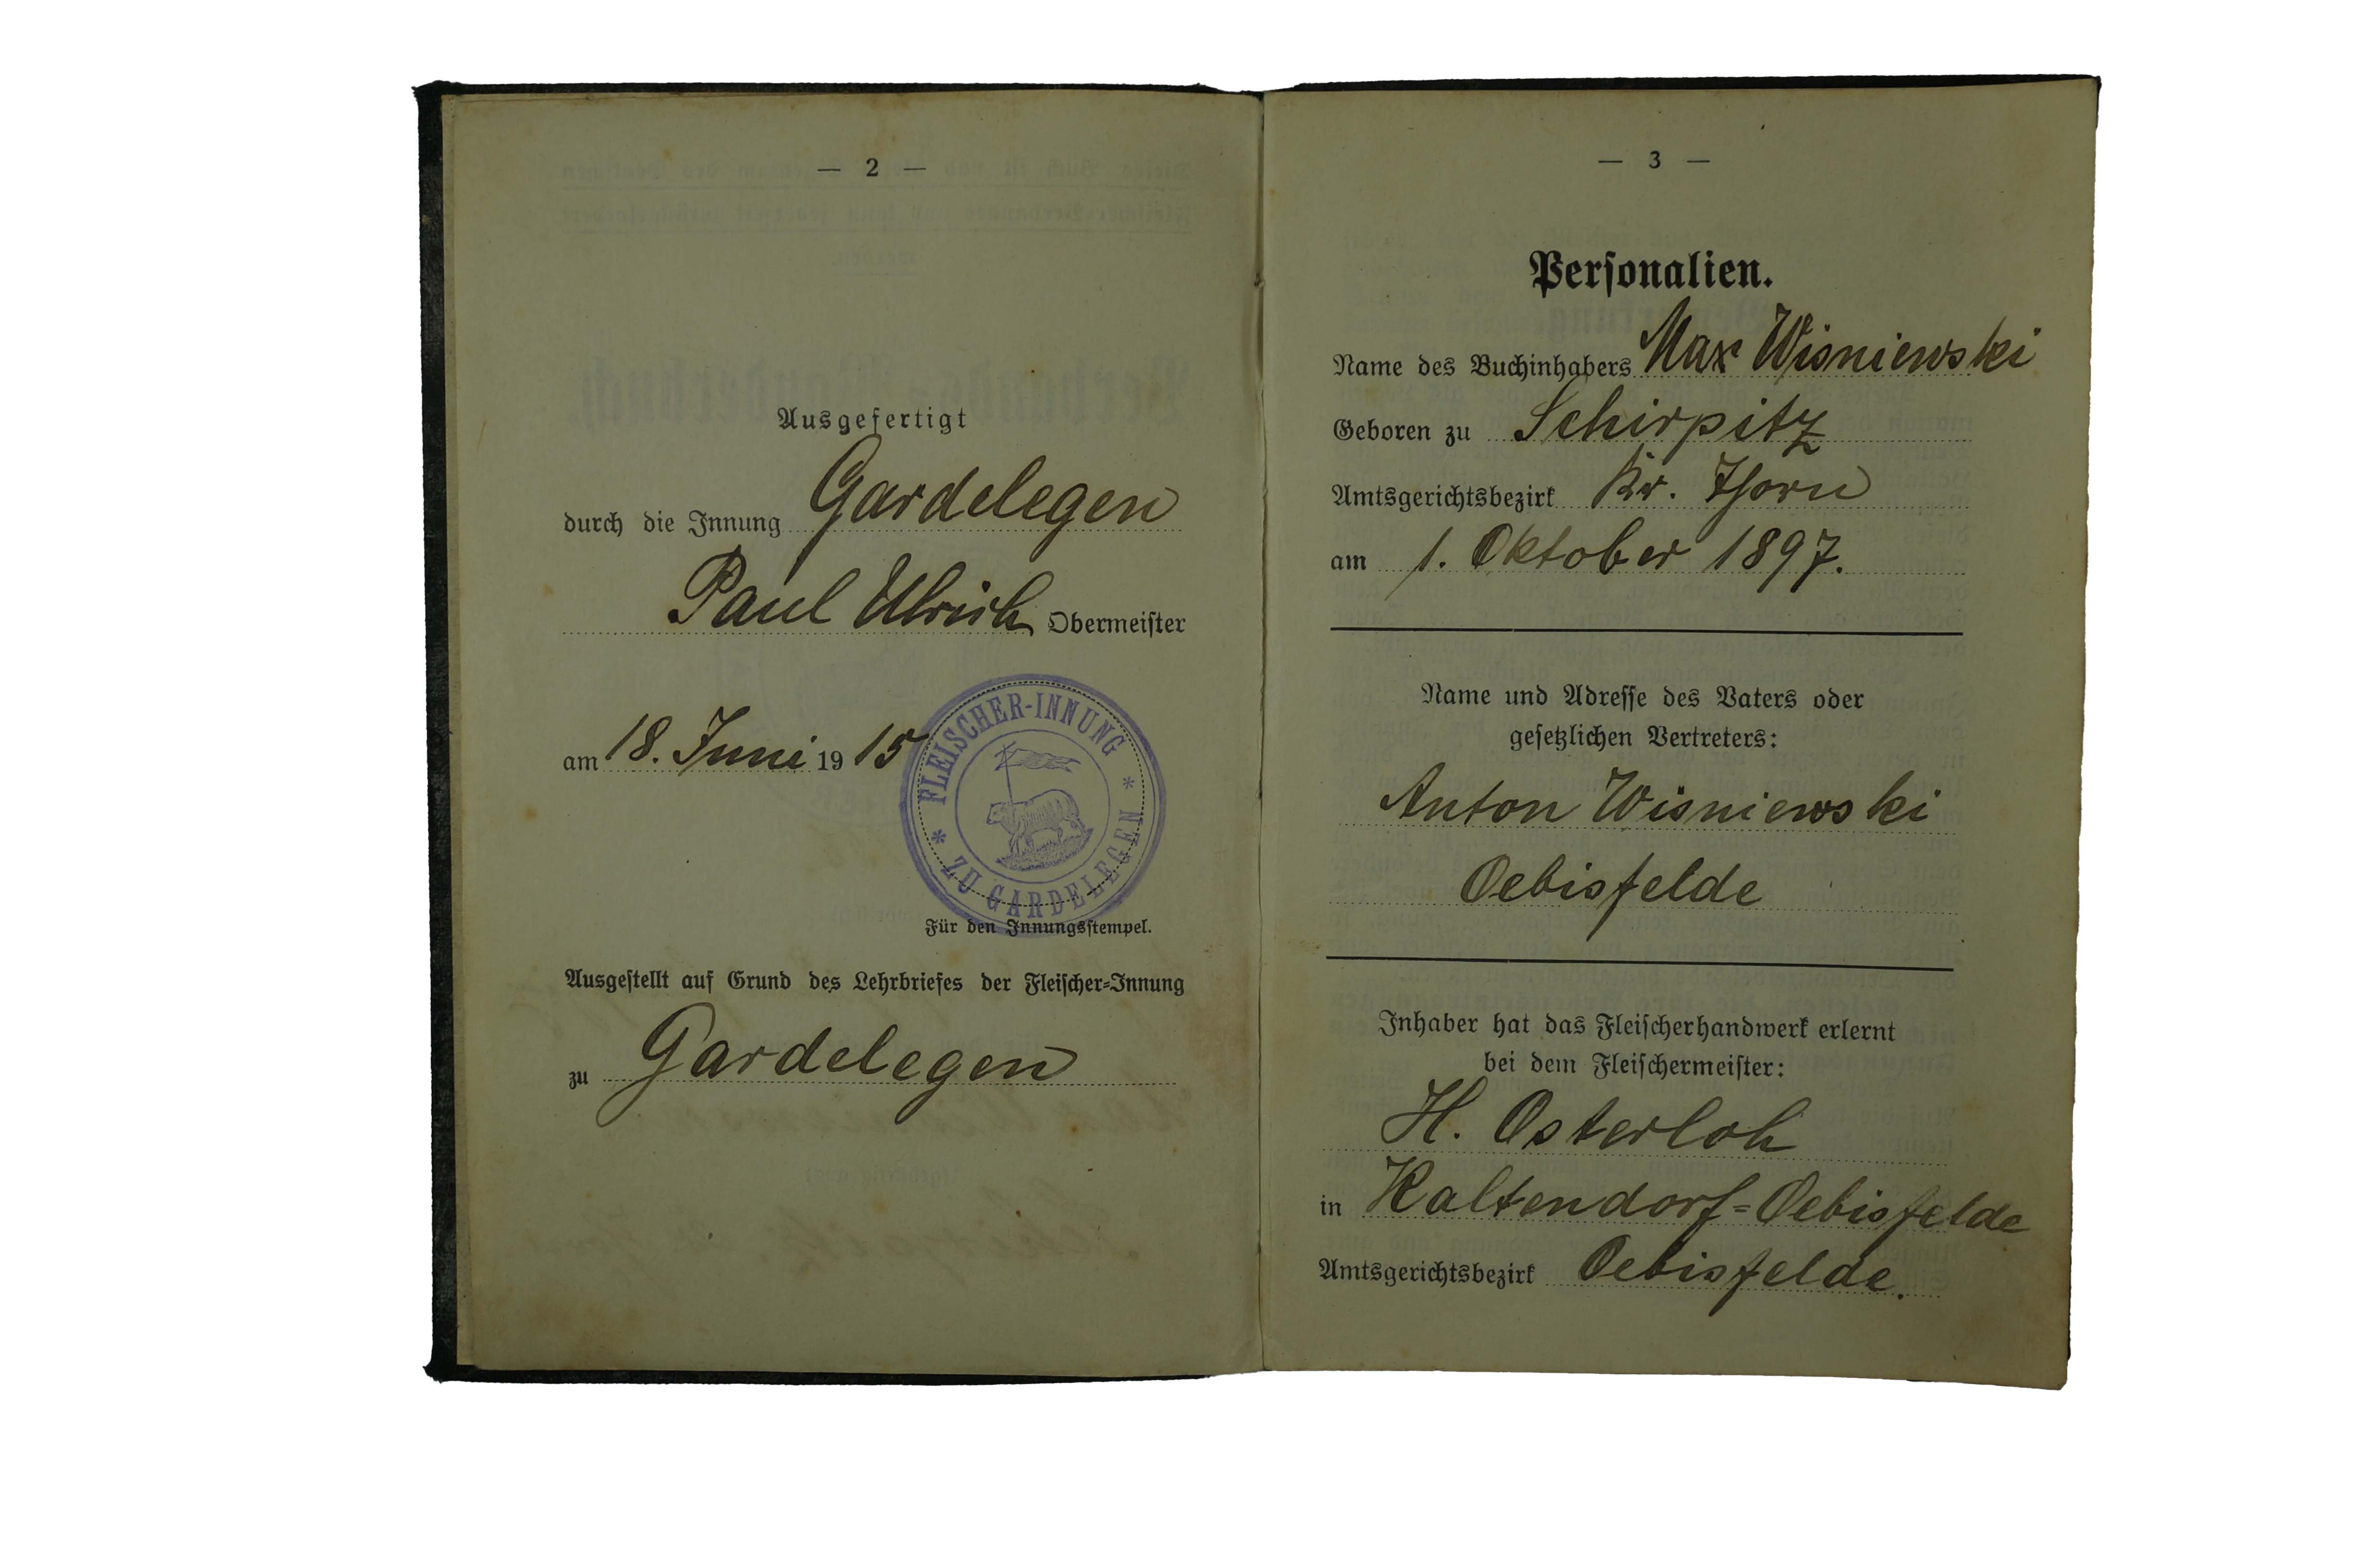 — 2 —
Ausgefertigt
durch die Innung Gardelegen
Paul Ulrich Obermeister
am 18. Juni 1915
FLEISCHER-INNUNG
* ZU GARDELEGEN *
Für den Innungsstempel.
Ausgestellt auf Grund des Lehrbriefes der Fleischer-Innung
zu Gardelegen
— 3 —
Personalien.
Name des Buchinhabers Max Wisniewski
Geboren zu Schirpitz
Amtsgerichtsbezirk Kr. Thorn
am 1. Oktober 1897.
Name und Adresse des Vaters oder
gesetzlichen Vertreters:
Anton Wisniewski
Oebisfelde
Inhaber hat das Fleischerhandwerk erlernt
bei dem Fleischermeister:
H. Osterloh
in Kaltendorf=Oebisfelde
Amtsgerichtsbezirk Oebisfelde.